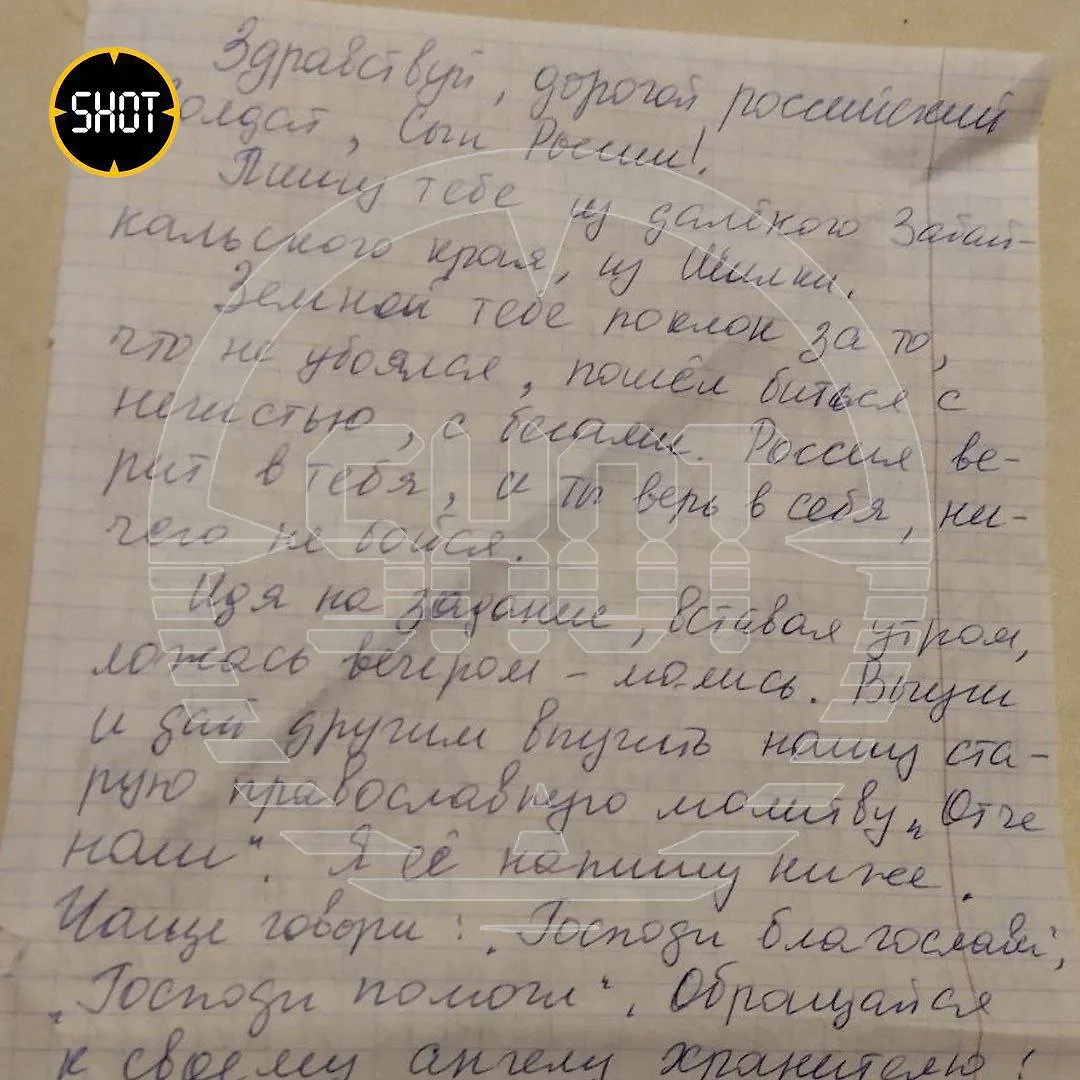 SHOT
Здравствуй, дорогой российский
солдат, Сын России!
Пишу тебе из далёкого Забай-
кальского края, из Шилки.
Земной тебе поклон за то,
что не убоялся, пошёл биться с
нечистью, с бесами. Россия ве-
рит в тебя, и ты верь в себя, ни-
чего не бойся.
Идя на задание, вставая утром,
ложась вечером – молись. Выучи
и дай другим выучить нашу ста-
рую православную молитву „Отче
наш“. Я её напишу ниже.
Чаще говори: „Господи благослави“,
„Господи помоги“, Обращайся
к своему ангелу хранителю!